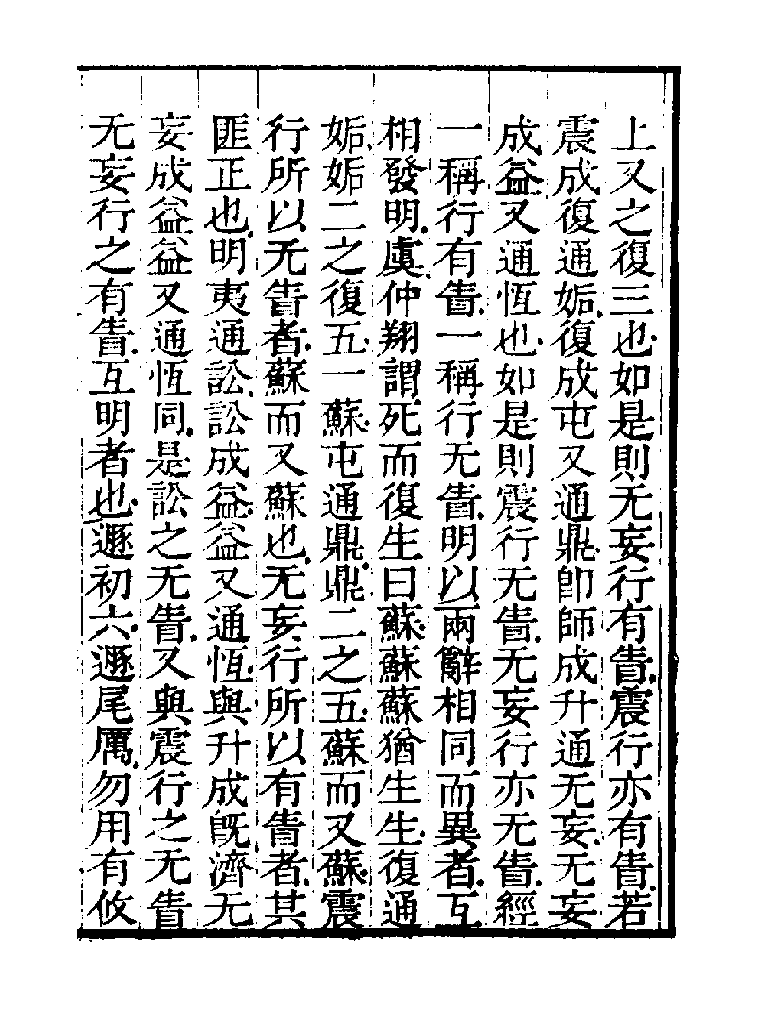 上又之復三也如是則无妄行有眚震行亦有眚若
震成復通姤復成屯又通鼎卽師成升通无妄无妄
成益又通恆也如是則震行无眚无妄行亦无眚經
一稱行有眚一稱行无眚明以兩辭相同而異者互
相發明虞仲翔謂死而復生曰蘇蘇蘇猶生生復通
姤姤二之復五一蘇屯通鼎鼎二之五蘇而又蘇震
行所以无眚者蘇而又蘇也无妄行所以有眚者其
匪正也明夷通訟訟成益益又通恆與升成旣濟无
妄成益益又通恆同是訟之无眚又與震行之无眚
无妄行之有眚互明者也遯初六遯尾厲勿用有攸